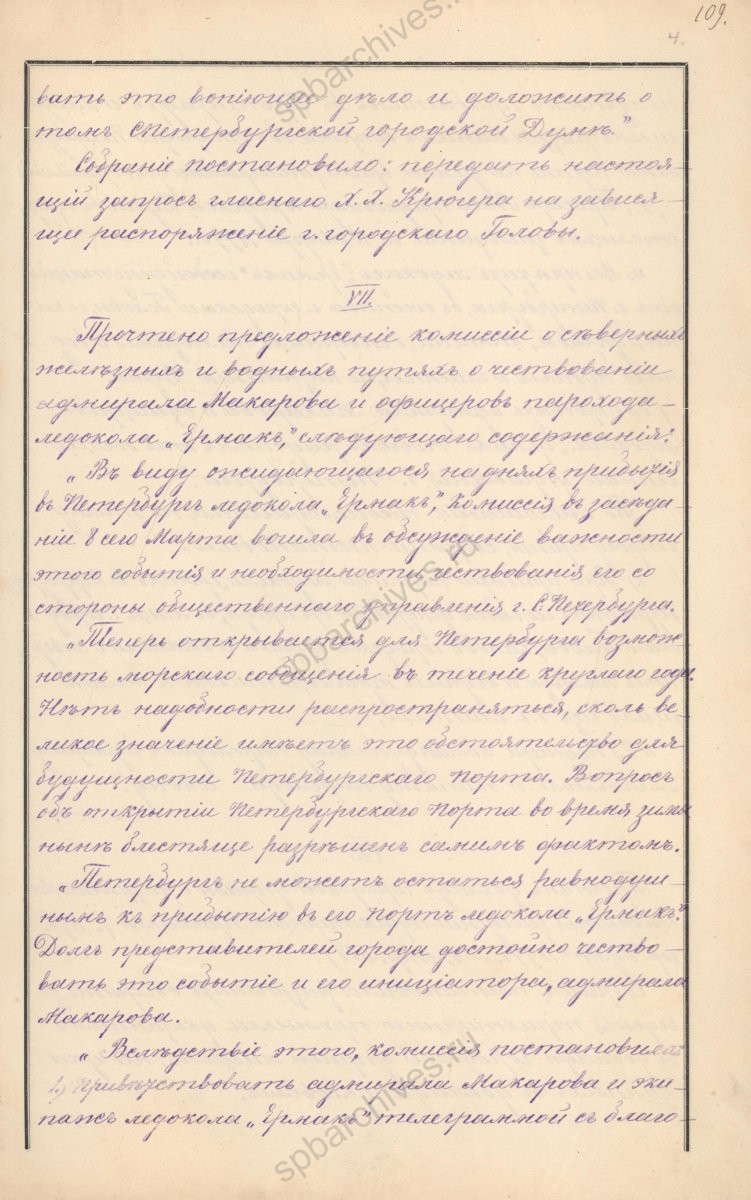 109.
4.
вать это вопіющее дѣло и доложить о
томъ СПетербургской городской Думѣ."
Собраніе постановило: передать настоя-
щій запросъ гласнаго Х. Х. Крюгера на завися-
щее распоряженіе г. городскаго Головы.
VII.
Прочтено предложеніе комиссіи о сѣверныхъ
желѣзныхъ и водныхъ путяхъ о чествованіи
адмирала Макарова и офицеровъ парохода-
ледокола „Ермакъ," слѣдующаго содержанія:
„Въ виду ожидающагося на дняхъ прибытія
въ Петербургъ ледокола „Ермакъ", Комиссія въ засѣда-
ніи 8 сего Марта вошла въ обсужденіе важности
этого событія и необходимости чествованія его со
стороны общественнаго управленія г. С. Петербурга.
„Теперь открывается для Петербурга возмож-
ность морскаго сообщенія въ теченіе круглаго года.
Нѣтъ надобности распространяться, сколь ве-
ликое значеніе имѣетъ это обстоятельство для
будущности Петербургскаго Порта. Вопросъ
объ открытіи Петербургскаго Порта во время зимы
нынѣ блестяще разрѣшенъ самимъ фактомъ.
„Петербургъ не можетъ остаться равнодуш-
нымъ къ прибытію въ его Портъ ледокола „Ермакъ".
Долгъ представителей города достойно чество-
вать это событіе и его иниціатора, адмирала
Макарова.
„Вслѣдствіе этого, комиссія постановила:
1) Привѣтствовать адмирала Макарова и эки-
пажъ ледокола „Ермакъ" телеграммой съ благо-
spbarchives.ru
spbarchives.ru
spbarchives.ru